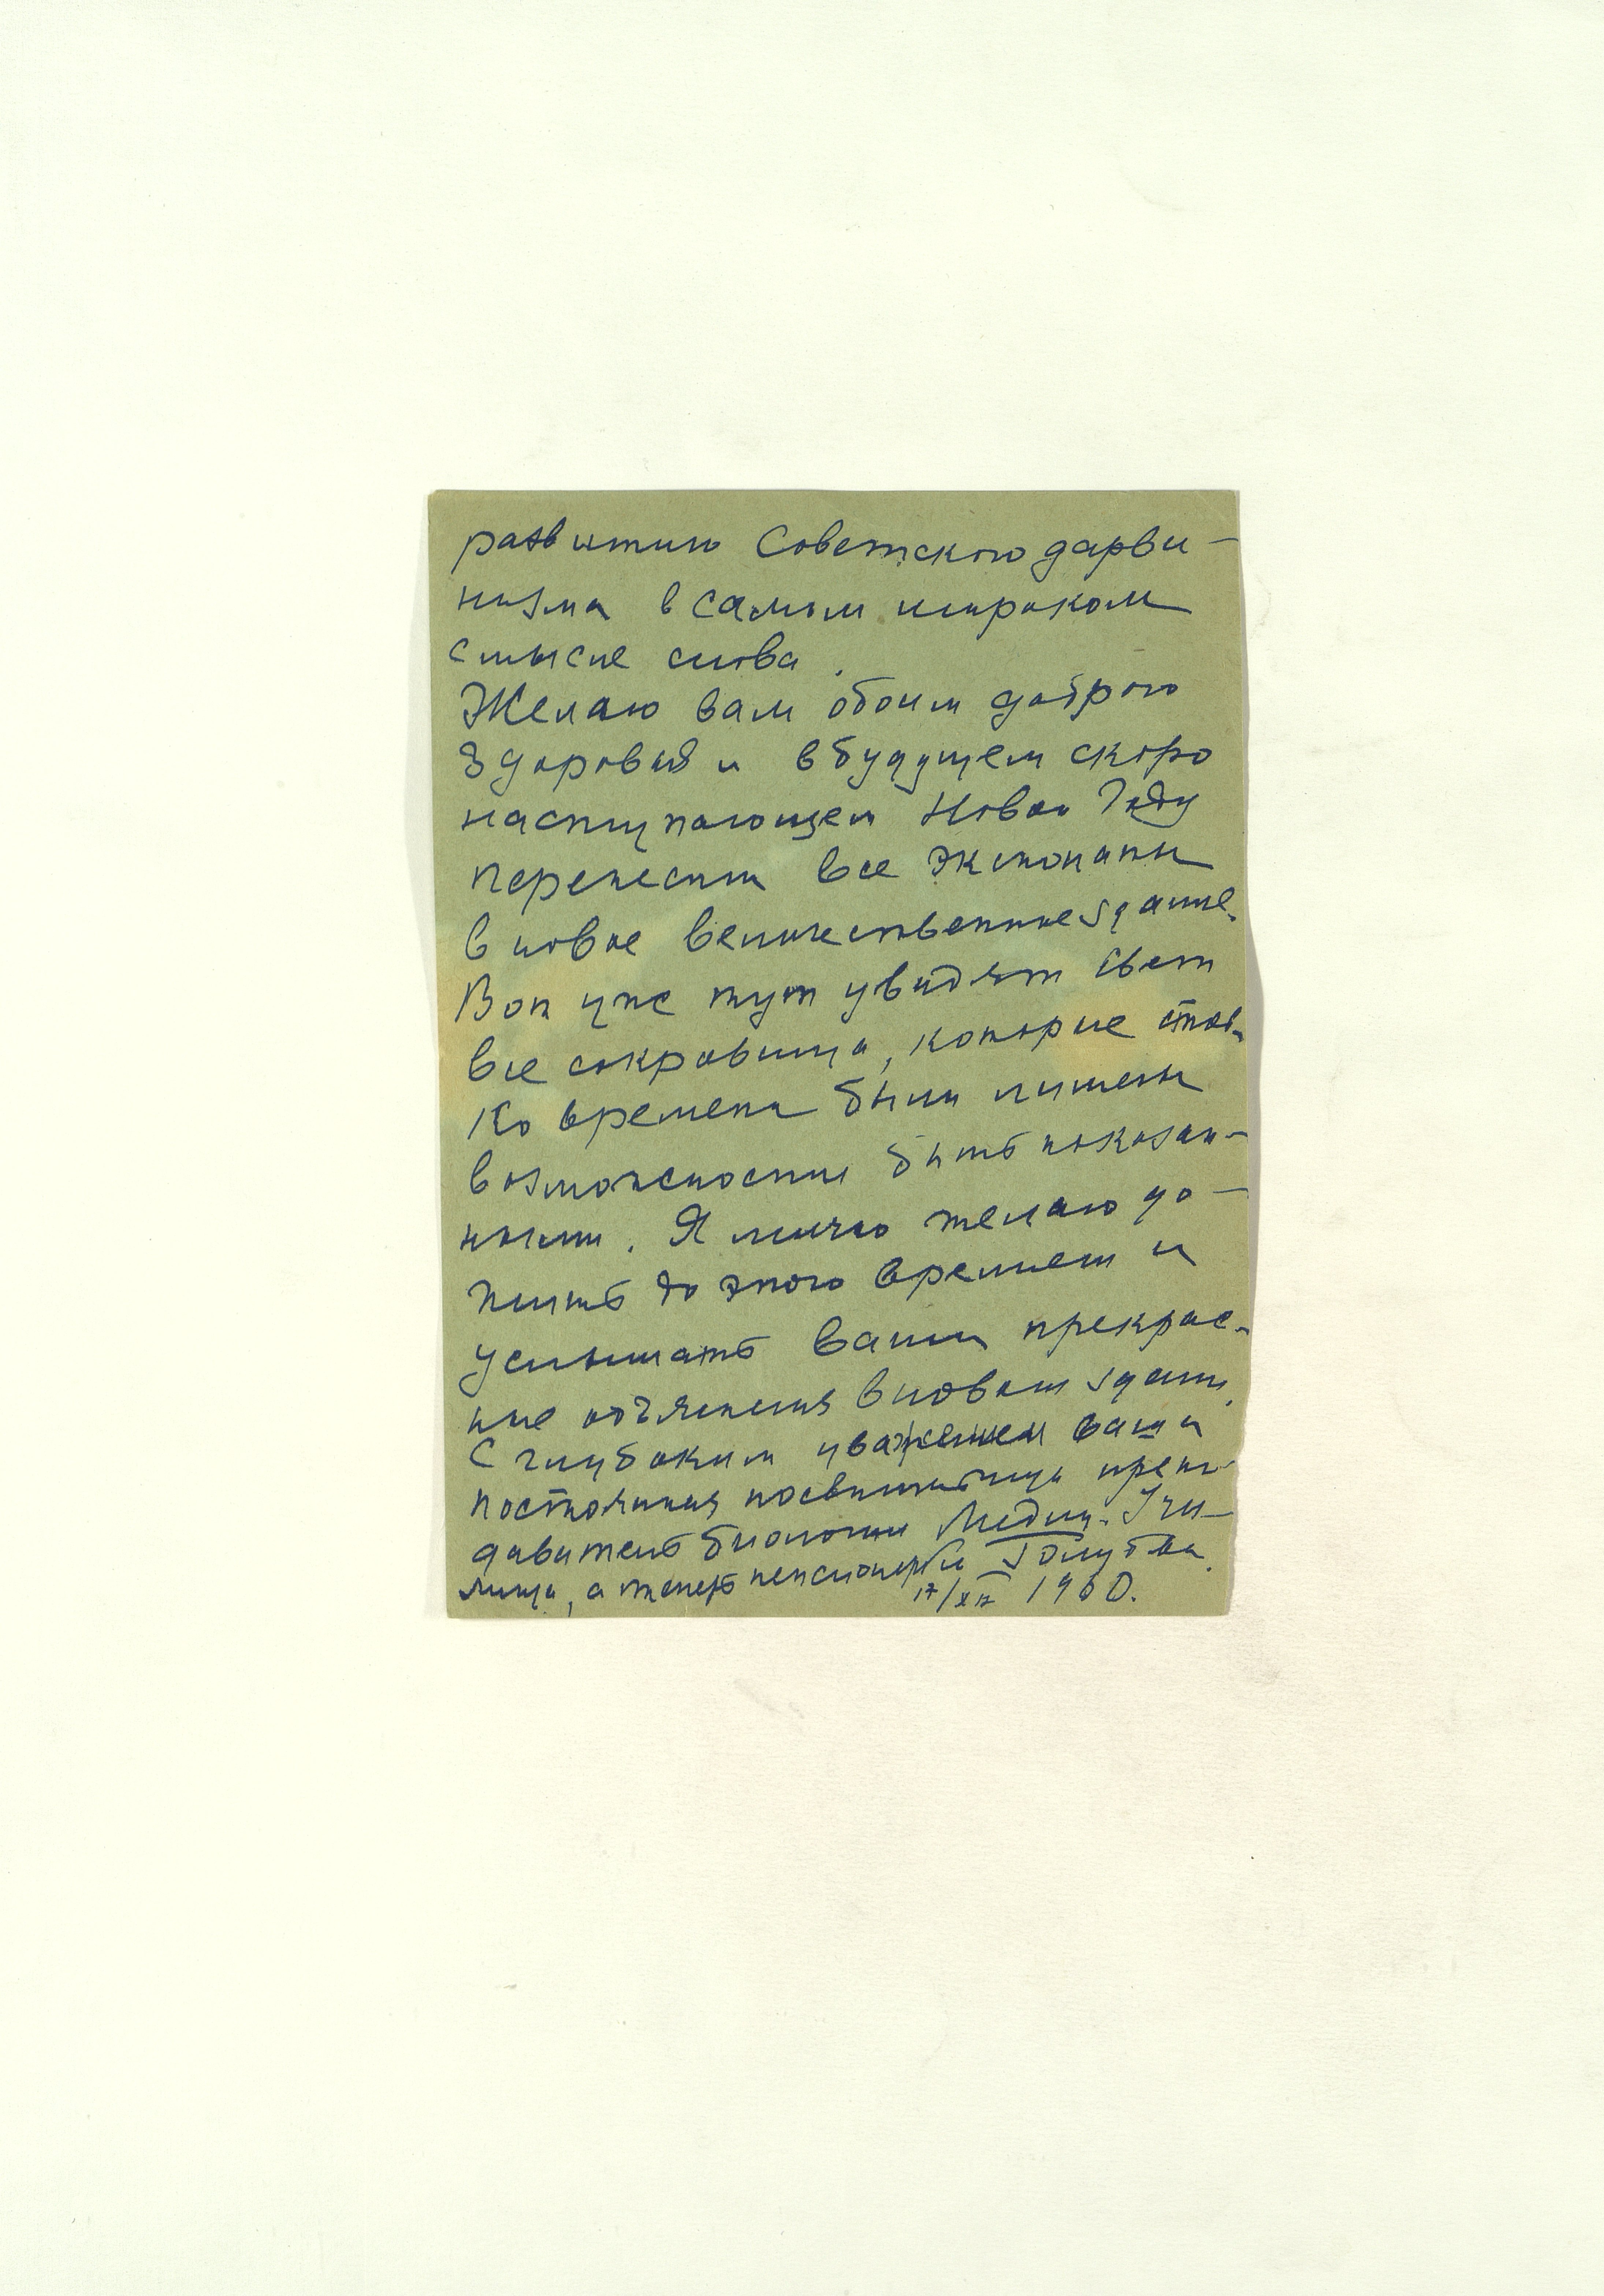 развитию Советского дарви-
низма в самом широком
смысле слова.
Желаю вам обоим доброго
здоровья и в будущем скоро
наступающем Новом Году
перенести все экспонаты
в новое величественное здание.
Вот уже тут увидят свет
все сокровища, которые столь-
ко времени были лишены
возможности быть показан-
ными. Я лично желаю до-
жить до этого времени и
услышать ваши прекрас-
ные объяснения в новом здании.
С глубоким уважением ваша
постоянная посетительница препо-
даватель биологии Медиц. Учи-
лища, а теперь пенсионерка Голубева.
17/XII 1960.